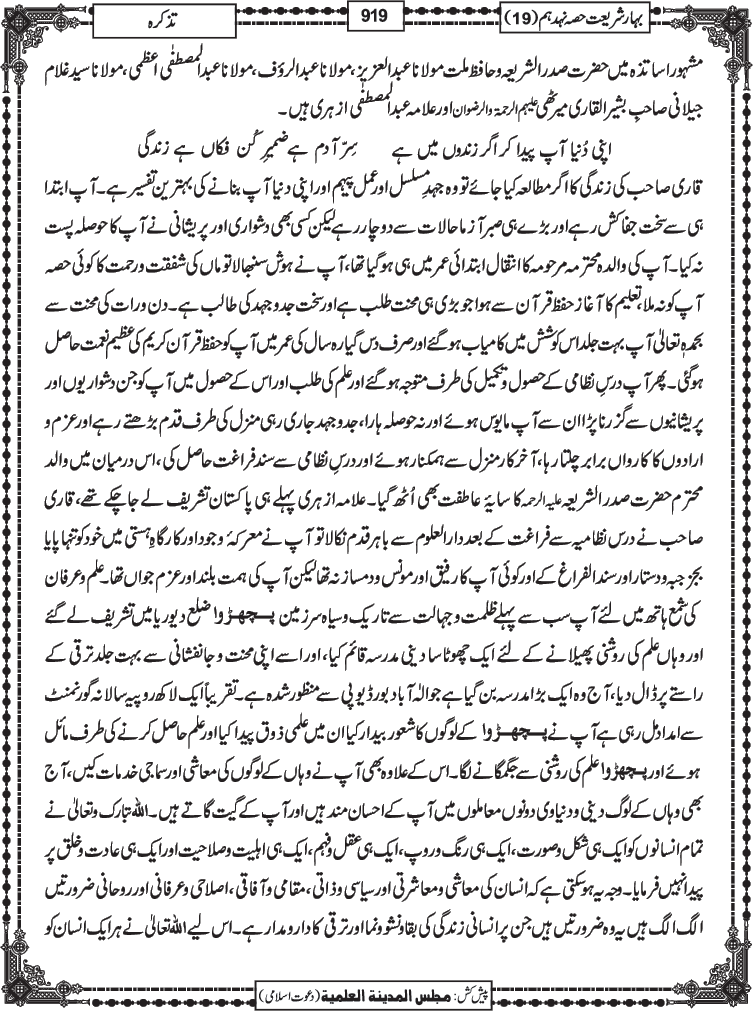 بہارِ شریعت حصہ نہدہم (19)
919
تذکرہ
مشہور اساتذہ میں حضرت صدر الشریعہ و حافظ ملت مولانا عبدالعزیز، مولانا عبدالرؤف، مولانا عبدالمصطفٰی اعظمی، مولانا سید غلام
جیلانی صاحبِ بشیر القاری میرٹھی علیہم الرحمۃ والرضوان اور علامہ عبدالمصطفٰی ازہری ہیں۔
اپنی دُنیا آپ پیدا کر اگر زندوں میں ہے سِرِّ آدم ہے ضمیرِ کُن فکاں ہے زندگی
قاری صاحب کی زندگی کا اگر مطالعہ کیا جائے تو وہ جہدِ مسلسل اور عمل پیہم اور اپنی دنیا آپ بنانے کی بہترین تفسیر ہے۔ آپ ابتدا
ہی سے سخت جفاکش رہے اور بڑے ہی صبر آزما حالات سے دوچار رہے لیکن کسی بھی دشواری اور پریشانی نے آپ کا حوصلہ پست
نہ کیا۔ آپ کی والدہ محترمہ مرحومہ کا انتقال ابتدائی عمر میں ہی ہوگیا تھا، آپ نے ہوش سنبھالا تو ماں کی شفقت و رحمت کا کوئی حصہ
آپ کو نہ ملا، تعلیم کا آغاز حفظ قرآن سے ہوا جو بڑی ہی محنت طلب ہے اور سخت جدوجہد کی طالب ہے۔ دن ورات کی محنت سے
بحمدہ تعالیٰ آپ بہت جلد اس کوشش میں کامیاب ہوگئے اور صرف دس گیارہ سال کی عمر میں آپ کو حفظ قرآن کریم کی عظیم نعمت حاصل
ہوگئی۔ پھر آپ درسِ نظامی کے حصول و تکمیل کی طرف متوجہ ہوگئے اور علم کی طلب اور اس کے حصول میں آپ کو جن دشواریوں اور
پریشانیوں سے گزرنا پڑا ان سے آپ مایوس ہوئے اور نہ حوصلہ ہارا، جدوجہد جاری رہی منزل کی طرف قدم بڑھتے رہے اور عزم و
ارادوں کا کارواں برابر چلتا رہا، آخر کار منزل سے ہمکنار ہوئے اور درسِ نظامی سے سند فراغت حاصل کی، اس درمیان میں والد
محترم حضرت صدر الشریعہ علیہ الرحمہ کا سایۂ عاطفت بھی اُٹھ گیا۔ علامہ ازہری پہلے ہی پاکستان تشریف لے جاچکے تھے، قاری
صاحب نے درس نظامیہ سے فراغت کے بعد دارالعلوم سے باہر قدم نکالا تو آپ نے معرکۂ وجود اور کارگاہِ ہستی میں خود کو تنہا پایا
بجز جبہ و دستار اور سند الفراغ کے اور کوئی آپ کا رفیق اور مونس و دمساز نہ تھا لیکن آپ کی ہمت بلند اور عزم جواں تھا۔ علم و عرفان
کی شمع ہاتھ میں لئے آپ سب سے پہلے ظلمت و جہالت سے تاریک و سیاہ سرزمین پچھڑوا ضلع دیوریا میں تشریف لے گئے
اور وہاں علم کی روشنی پھیلانے کے لئے ایک چھوٹا سا دینی مدرسہ قائم کیا، اور اسے اپنی محنت و جانفشانی سے بہت جلد ترقی کے
راستے پر ڈال دیا، آج وہ ایک بڑا مدرسہ بن گیا ہے جو الہ آباد بورڈ یوپی سے منظور شدہ ہے۔ تقریباً ایک لاکھ روپیہ سالانہ گورنمنٹ
سے امداد مل رہی ہے آپ نے پچھڑوا کے لوگوں کا شعور بیدار کیا ان میں علمی ذوق پیدا کیا اور علم حاصل کرنے کی طرف مائل
ہوئے اور پچھڑوا علم کی روشنی سے جگمگانے لگا۔ اس کے علاوہ بھی آپ نے وہاں کے لوگوں کی معاشی اور سماجی خدمات کیں، آج
بھی وہاں کے لوگ دینی و دنیاوی دونوں معاملوں میں آپ کے احسان مند ہیں اور آپ کے گیت گاتے ہیں۔ اللہ تبارک و تعالیٰ نے
تمام انسانوں کو ایک ہی شکل و صورت، ایک ہی رنگ و روپ، ایک ہی عقل و فہم، ایک ہی اہلیت و صلاحیت اور ایک ہی عادت و خلق پر
پیدا نہیں فرمایا۔ وجہ یہ ہوسکتی ہے کہ انسان کی معاشی و معاشرتی اور سیاسی و ذاتی، مقامی و آفاقی، اصلاحی و عرفانی اور روحانی ضرورتیں
الگ الگ ہیں یہ وہ ضرورتیں ہیں جن پر انسانی زندگی کی بقا و نشوونما اور ترقی کا دارومدار ہے۔ اس لیے اللہ تعالیٰ نے ہر ایک انسان کو
پیش کش: مجلس المدینۃ العلمیۃ (دعوت اسلامی)